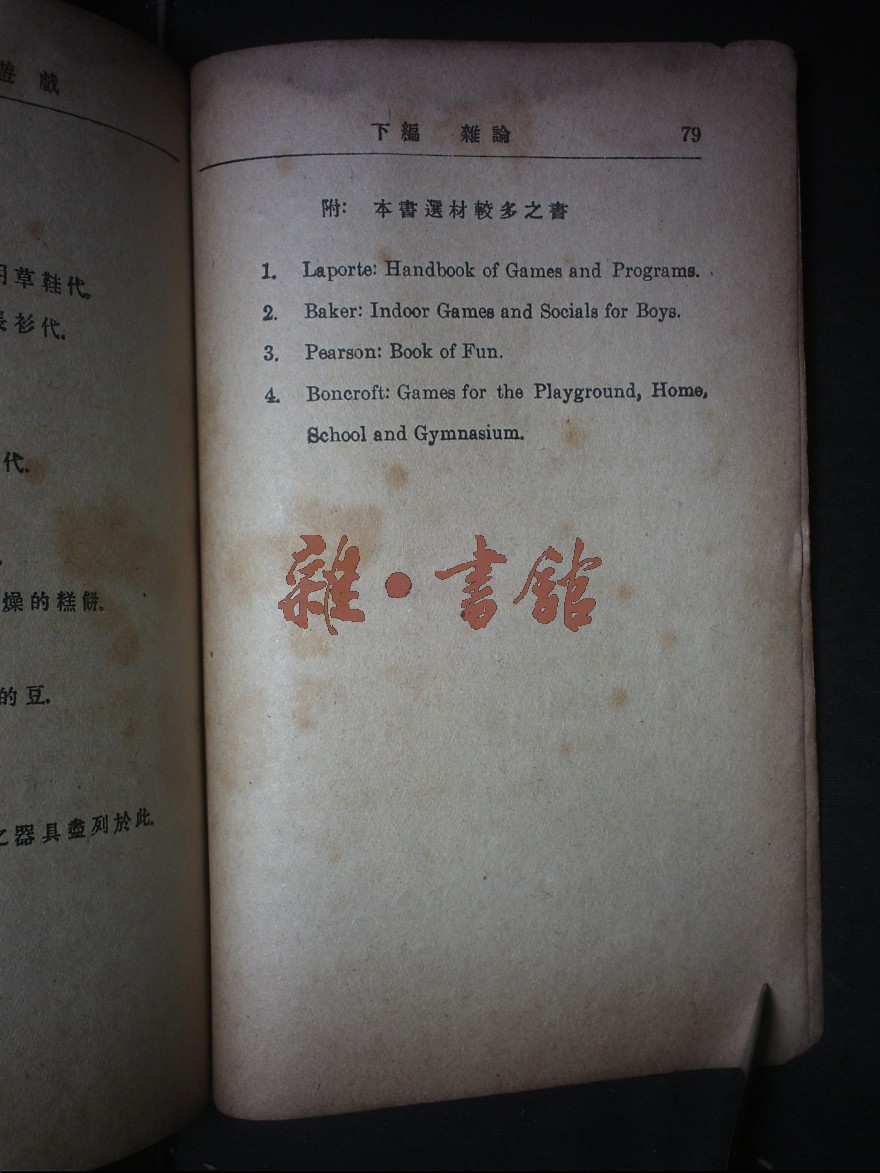 遊戲
用草鞋代。
長衫代.
代.
燥的糕餅。
的豆.
之器具盡列於此.
下編 雜論 79
附: 本書選材較多之書
1. Laporte: Handbook of Games and Programs.
2. Baker: Indoor Games and Socials for Boys.
3. Pearson: Book of Fun.
4. Boncroft: Games for the Playground, Home,
School and Gymnasium.
雜·書館